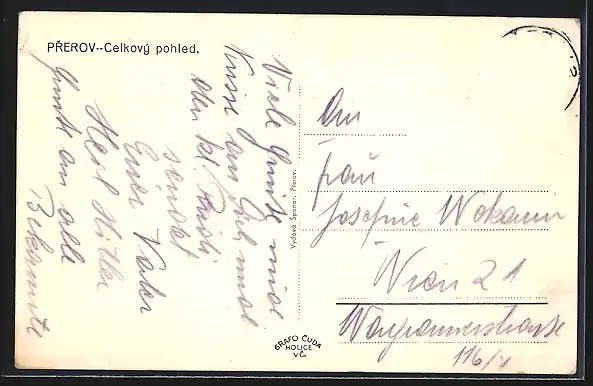 PŘEROV--Celkový pohled.
Viele Grüße und
Küsse an Euch und
den kl.
sendet
Euer Vater
Heil Hitler
Gruß an alle
Bekannte
Vydává Sponer, Přerov.
GRAFO ČUDA
HOLICE
v Č.
An
Frau
Josefine
Wien 21
Wagramerstrasse
116/